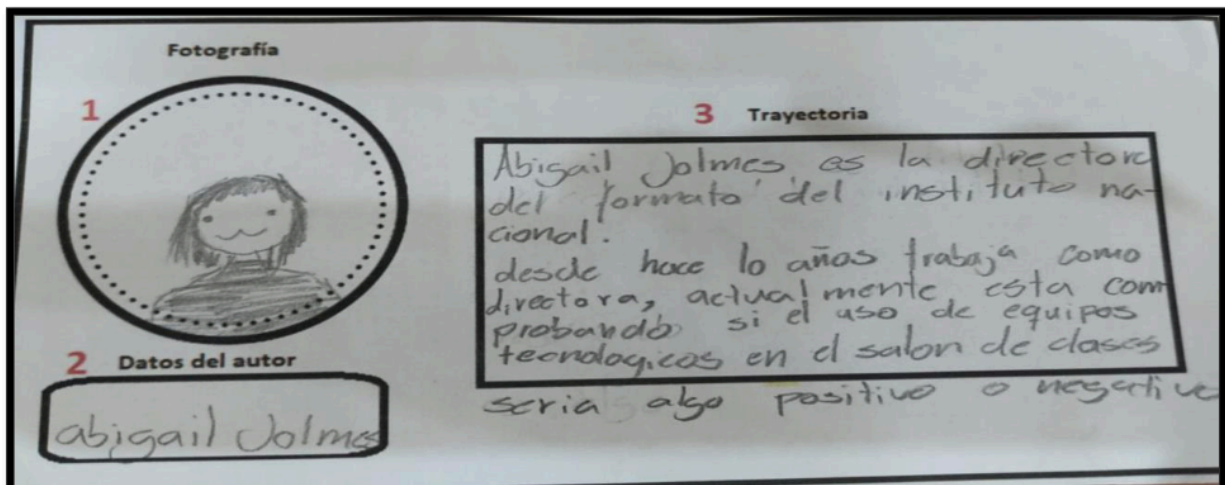 Fotografía
1
2 Datos del autor
abigail Jolmes
3 Trayectoria
Abigail Jolmes, es la directora
del formato del instituto na-
cional.
desde hace 10 años trabaja como
directora, actualmente esta com
probando si el uso de equipos
tecnologicos en el salon de clases
seria algo positivo o negativo